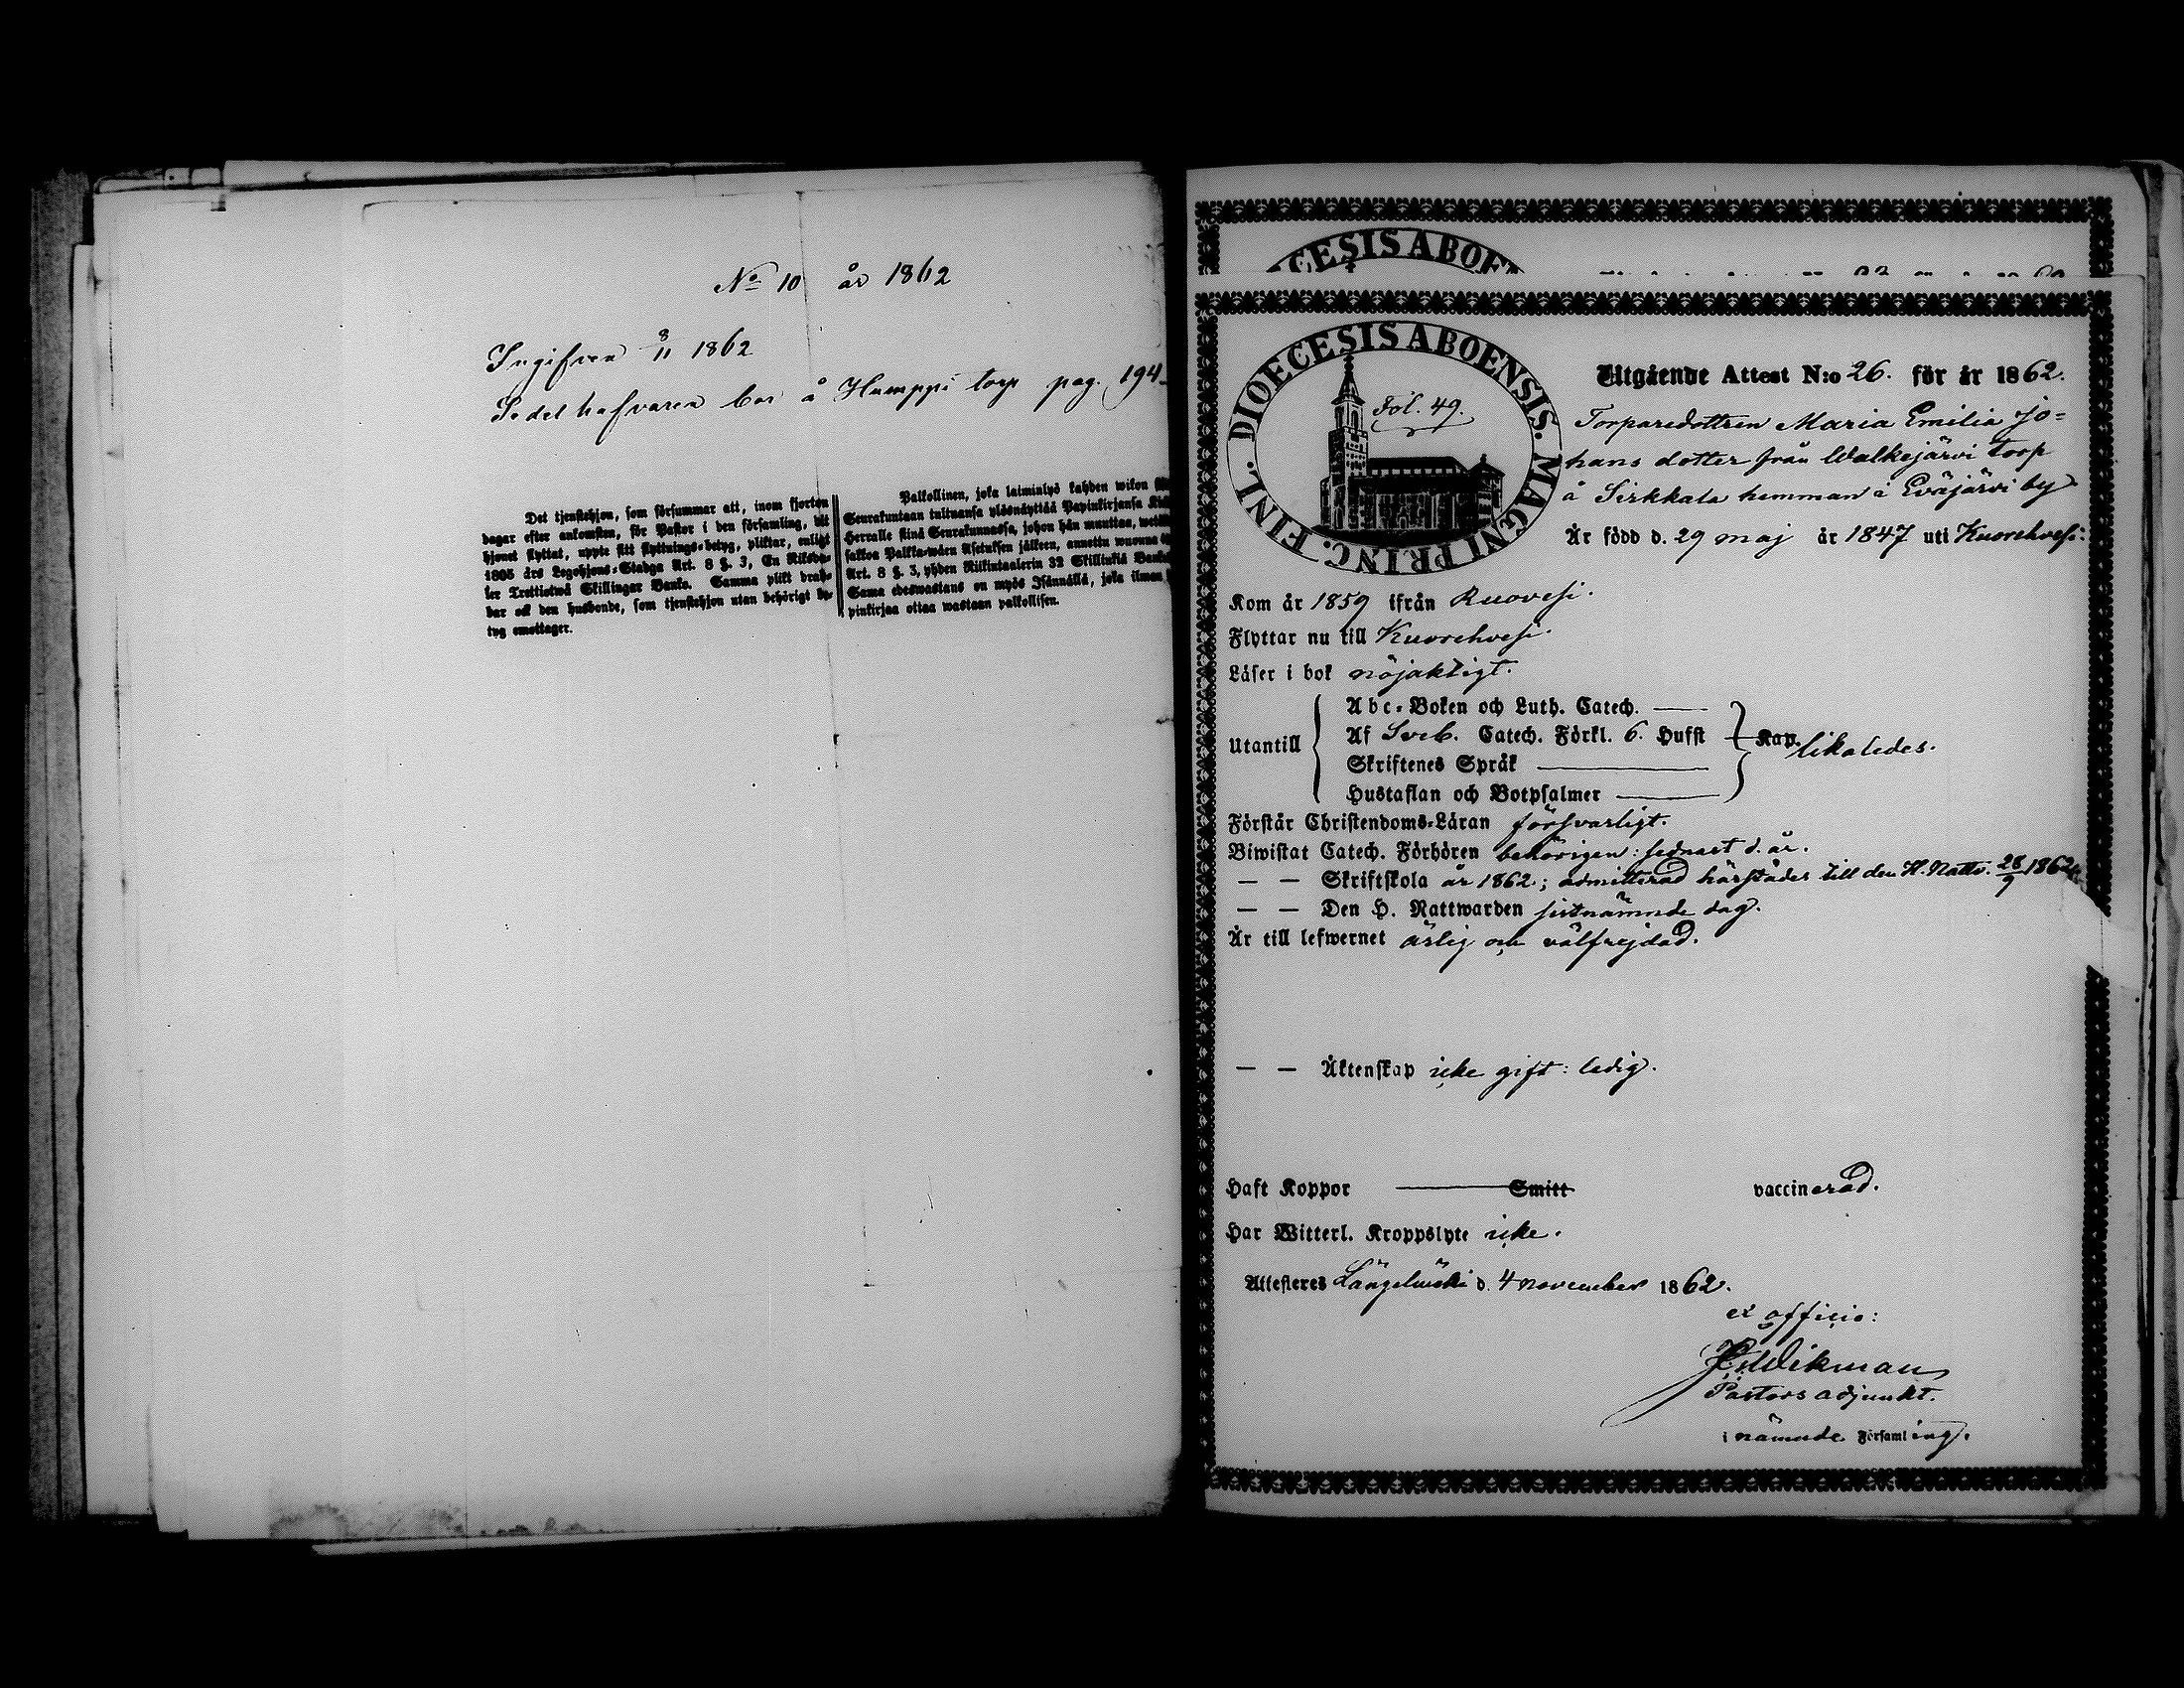 No 10 år 1862
Ingifven 8/11 1862
Sedelhafvaren bor å Humppi torp pag. 194
Det tjenstehjon, som försummar att, inom fjorton
dagar efter ankomsten, för Pastor i den församling, dit
hjonet flyttat, uppte sitt flyttnings-betyg, pliktar, enligt
1805 års Legohjons-Stadga Art. 8 §. 3, En Riksda-
ler Trettiotwå Skillingar Banko. Samma plikt drab-
bar ock den husbonde, som tjenstehjon utan behörigt be-
tyg emottager.
Palkollinen, joka laiminlyö kahden wikon
Seurakuntaan tultuansa ylösnäyttää Papinkirjansa
Herralle siinä Seurakunnassa, johon hän muuttaa,
sakkoa Palkka-wäen Asetuksen jälkeen, annettu wuonna
Art. 8 §. 3, yhden Riikintaalerin 32 Skillinkiä
Sama edeswastaus on myös Isännällä, joka ilman
pinkirjaa ottaa wastaan palkollisen.
CESIS ABOE
DIOECESIS ABOENSIS. MAGNI PRINC. FINL.
Fol. 49.
Utgående Attest N:o 26. för år 1862.
Torparedottren Maria Emilia Jo=
hans dotter från Walkejärvi torp
å Sirkkala hemman i Eväjärvi by
Är född d. 29 maj år 1847 uti Kuorehvesi.
Kom år 1859 ifrån Ruovesi.
Flyttar nu till Kuorehvesi.
Läser i bok nöjaktigt.
Abc-Boken och Luth. Catech. —
Utantill Af Sveb. Catech. Förkl. 6. Hufst — Kap. likaledes.
Skriftenes Språk —
Hustaflan och Botpsalmer —
Förstår Christendoms-Läran försvarligt.
Biwistat Catech. Förhören behörigen: sednast d. år.
— — Skriftskola år 1862; admitterad härstädes till den H. Nattv. 28/9 1862.
— — Den H. Nattwarden sistnämnde dag.
Är till lefwernet ärlig och välfrejdad.
— — Äktenskap icke gift: ledig.
Haft Koppor — Smitt vaccinerad.
Har Witterl. Kroppslyte icke.
Attesteres Längelmäki d. 4 november 1862.
ex officio:
Wikman
Pastors adjunkt.
i nämnde Församling.